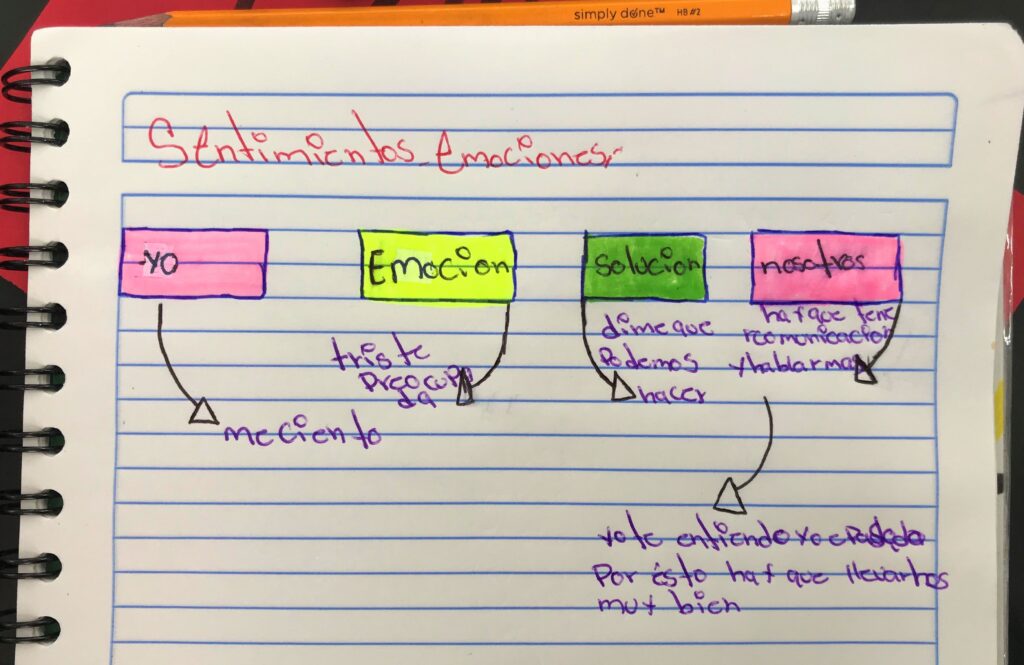 simply done™ HB #2
Sentimientos-emociones
yo
Emocion
solucion
nosotros
me ciento
triste
preocupa
da
dime que
Podemos
hacer
hay que tene
r comonicacion
y hablar mas
yo te entiendo yo e
Por ésto hay que llevarnos
muy bien